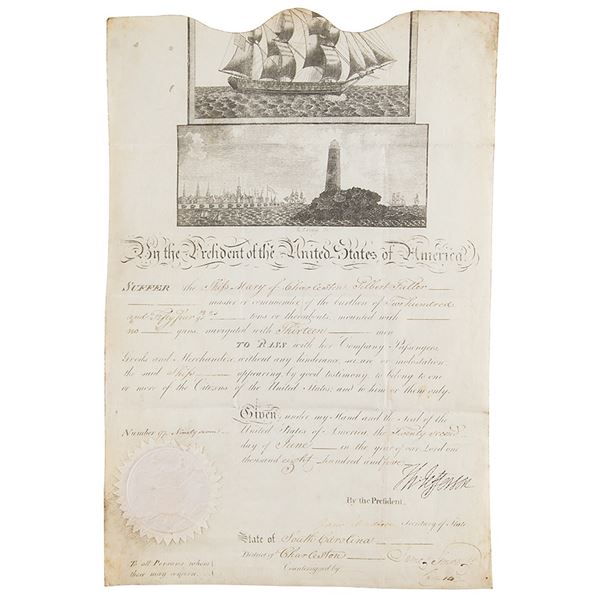 By the President of the United States of America,
SUFFER the Ship Mary of Charleston Filbert Fuller
master or commander of the burthen of Two Hundred
and Fifty four tons or thereabouts, mounted with
no guns, navigated with Thirteen men
TO PASS with her Company Passengers,
Goods and Merchandize without any hinderance, seizure or molestation
the said Ship appearing by good testimony to belong to one
or more of the Citizens of the United States, and to him or them only.
Given under my Hand and the Seal of the
United States of America, the Twenty second
Number
day of June in the year of our Lord one
thousand eight hundred and
Th: Jefferson
By the President,
James Madison Secretary of State
State of South Carolina
District of Charleston
Countersigned by
To all Persons whom
these may concern.